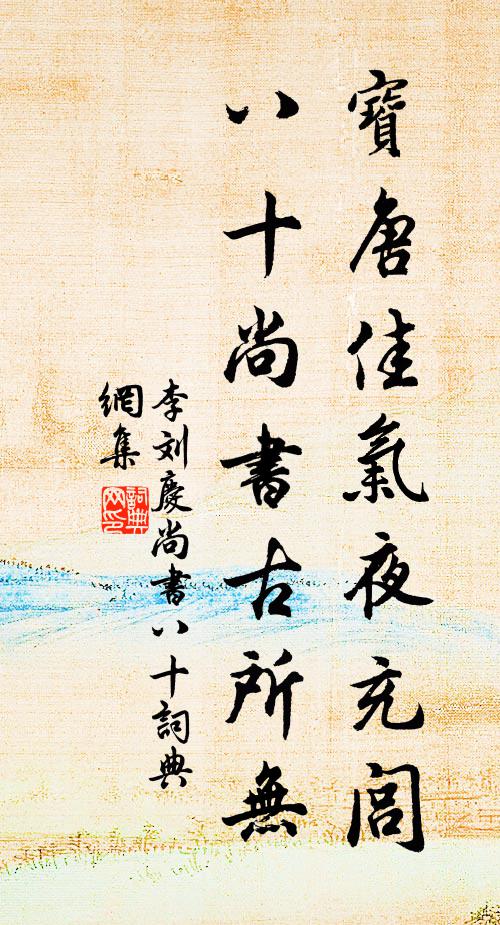 寶唐佳氣夜充閭
八十尚書古所無
李刘慶尚書八十詞典
網集
詞典
网印